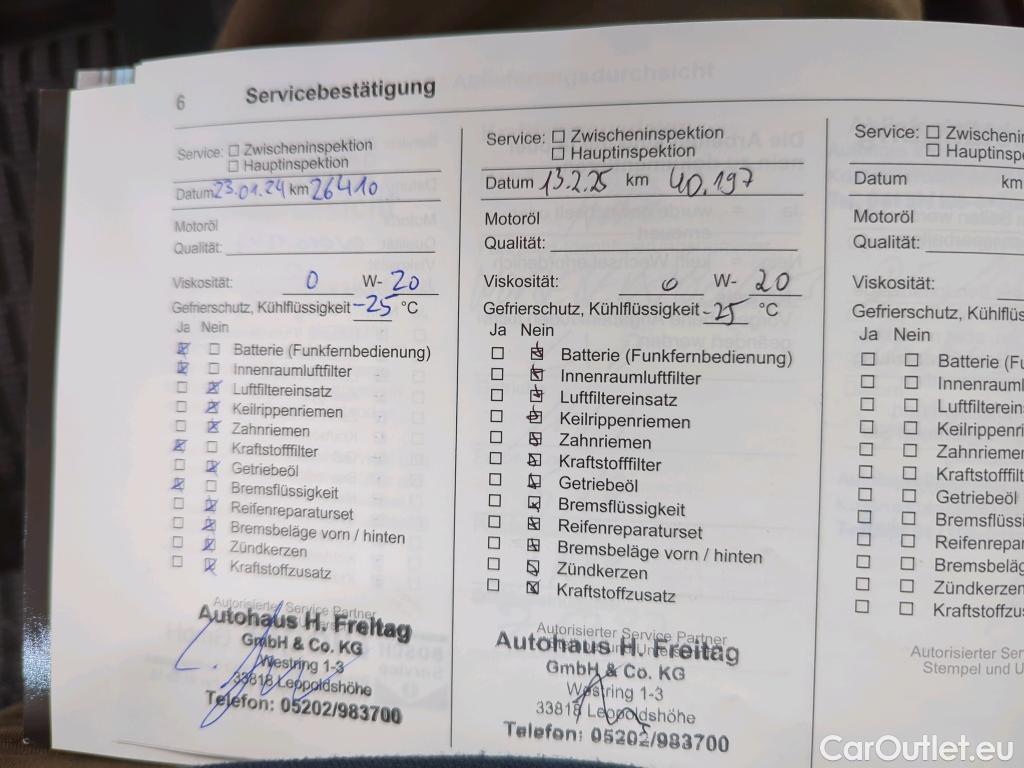 6 Servicebestätigung
Service: Zwischeninspektion
Hauptinspektion
Datum 23.01.24 km 26410
Motoröl
Qualität:
Viskosität: 0 W- 20
Gefrierschutz, Kühlflüssigkeit -25 °C
Ja Nein
Batterie (Funkfernbedienung)
Innenraumluftfilter
Luftfiltereinsatz
Keilrippenriemen
Zahnriemen
Kraftstofffilter
Getriebeöl
Bremsflüssigkeit
Reifenreparaturset
Bremsbeläge vorn / hinten
Zündkerzen
Kraftstoffzusatz
Autorisierter Service Partner
Autohaus H. Freitag
GmbH & Co. KG
Westring 1-3
33818 Leopoldshöhe
Telefon: 05202/983700
Service: Zwischeninspektion
Hauptinspektion
Datum 13.2.25 km 40.197
Motoröl
Qualität:
Viskosität: 0 W- 20
Gefrierschutz, Kühlflüssigkeit -25 °C
Ja Nein
Batterie (Funkfernbedienung)
Innenraumluftfilter
Luftfiltereinsatz
Keilrippenriemen
Zahnriemen
Kraftstofffilter
Getriebeöl
Bremsflüssigkeit
Reifenreparaturset
Bremsbeläge vorn / hinten
Zündkerzen
Kraftstoffzusatz
Autorisierter Service Partner
Autohaus H. Freitag
GmbH & Co. KG
Westring 1-3
33818 Leopoldshöhe
Telefon: 05202/983700
Service: Zwischenin
Hauptinspe
Datum km
Motoröl
Qualität:
Viskosität:
Gefrierschutz, Kühlflüss
Ja Nein
Batterie (Fu
Innenrauml
Luftfilterein
Keilrippenri
Zahnriemen
Kraftstofffilt
Getriebeöl
Bremsflüssi
Reifenrepar
Bremsbeläg
Zündkerzen
Kraftstoffzu
Autorisierter Se
Stempel und U
CarOutlet.eu